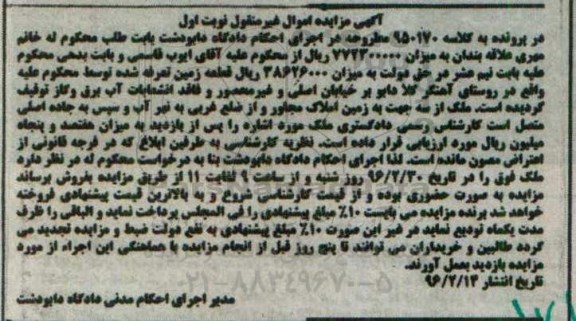 آگهی مزایده اموال غیرمنقول نوبت اول
در پرونده به کلاسه ۹۵۰۱۷۰ مطروحه در اجرای احکام دادگاه دابودشت بابت طلب محکوم له خانم
مهری علاقه بندان به میزان ریال از محکوم علیه آقای ایوب قاسمی و بابت بدهی محکوم
علیه بابت نیم عشر در حق دولت به میزان ۳۸۶۲۶۰۰۰ ریال قطعه زمین تعرفه شده توسط محکوم علیه
واقع در روستای آهنگر کلا دابو بر خیابان اصلی و غیرمحصور و فاقد انشعابات آب برق وگاز توقیف
گردیده است. ملک از سه جهت به زمین املاک مجاور و از ضلع غربی به نهر آب و سپس به جاده اصلی
متصل است کارشناس رسمی دادگستری ملک مورد اشاره را پس از بازدید به میزان هفتصد و پنجاه
میلیون ریال مورد ارزیابی قرار داده است. نظریه کارشناسی به طرفین ابلاغ که در فرجه قانونی از
اعتراض مصون مانده است. لذا اجرای احکام دادگاه دابودشت بنا به درخواست محکوم له در نظر دارد
ملک فوق را در تاریخ ۹۶/۲/۳۰ روز شنبه و از ساعت ۹ لغایت ۱۱ از طریق مزایده بفروش برساند
مزایده به صورت حضوری بوده و از قیمت کارشناسی شروع و به بالاترین قیمت پیشنهادی فروخته
خواهد شد برنده مزایده می بایست ۱۰٪ مبلغ پیشنهادی را فی المجلس پرداخت نماید و الباقی را ظرف
مدت یکماه تودیع نماید در غیر این صورت ۱۰٪ مبلغ پیشنهادی به نفع دولت ضبط و مزایده تجدید می
گردد طالبین و خریداران می توانند تا پنج روز قبل از انجام مزایده با هماهنگی این اجراء از مورد
مزایده بازدید بعمل آورند.
تاریخ انتشار ۹۶/۲/۱۴
مدیر اجرای احکام مدنی دادگاه دابودشت
۰۲۱-۸۸۳۴۹۶۷۰-۵